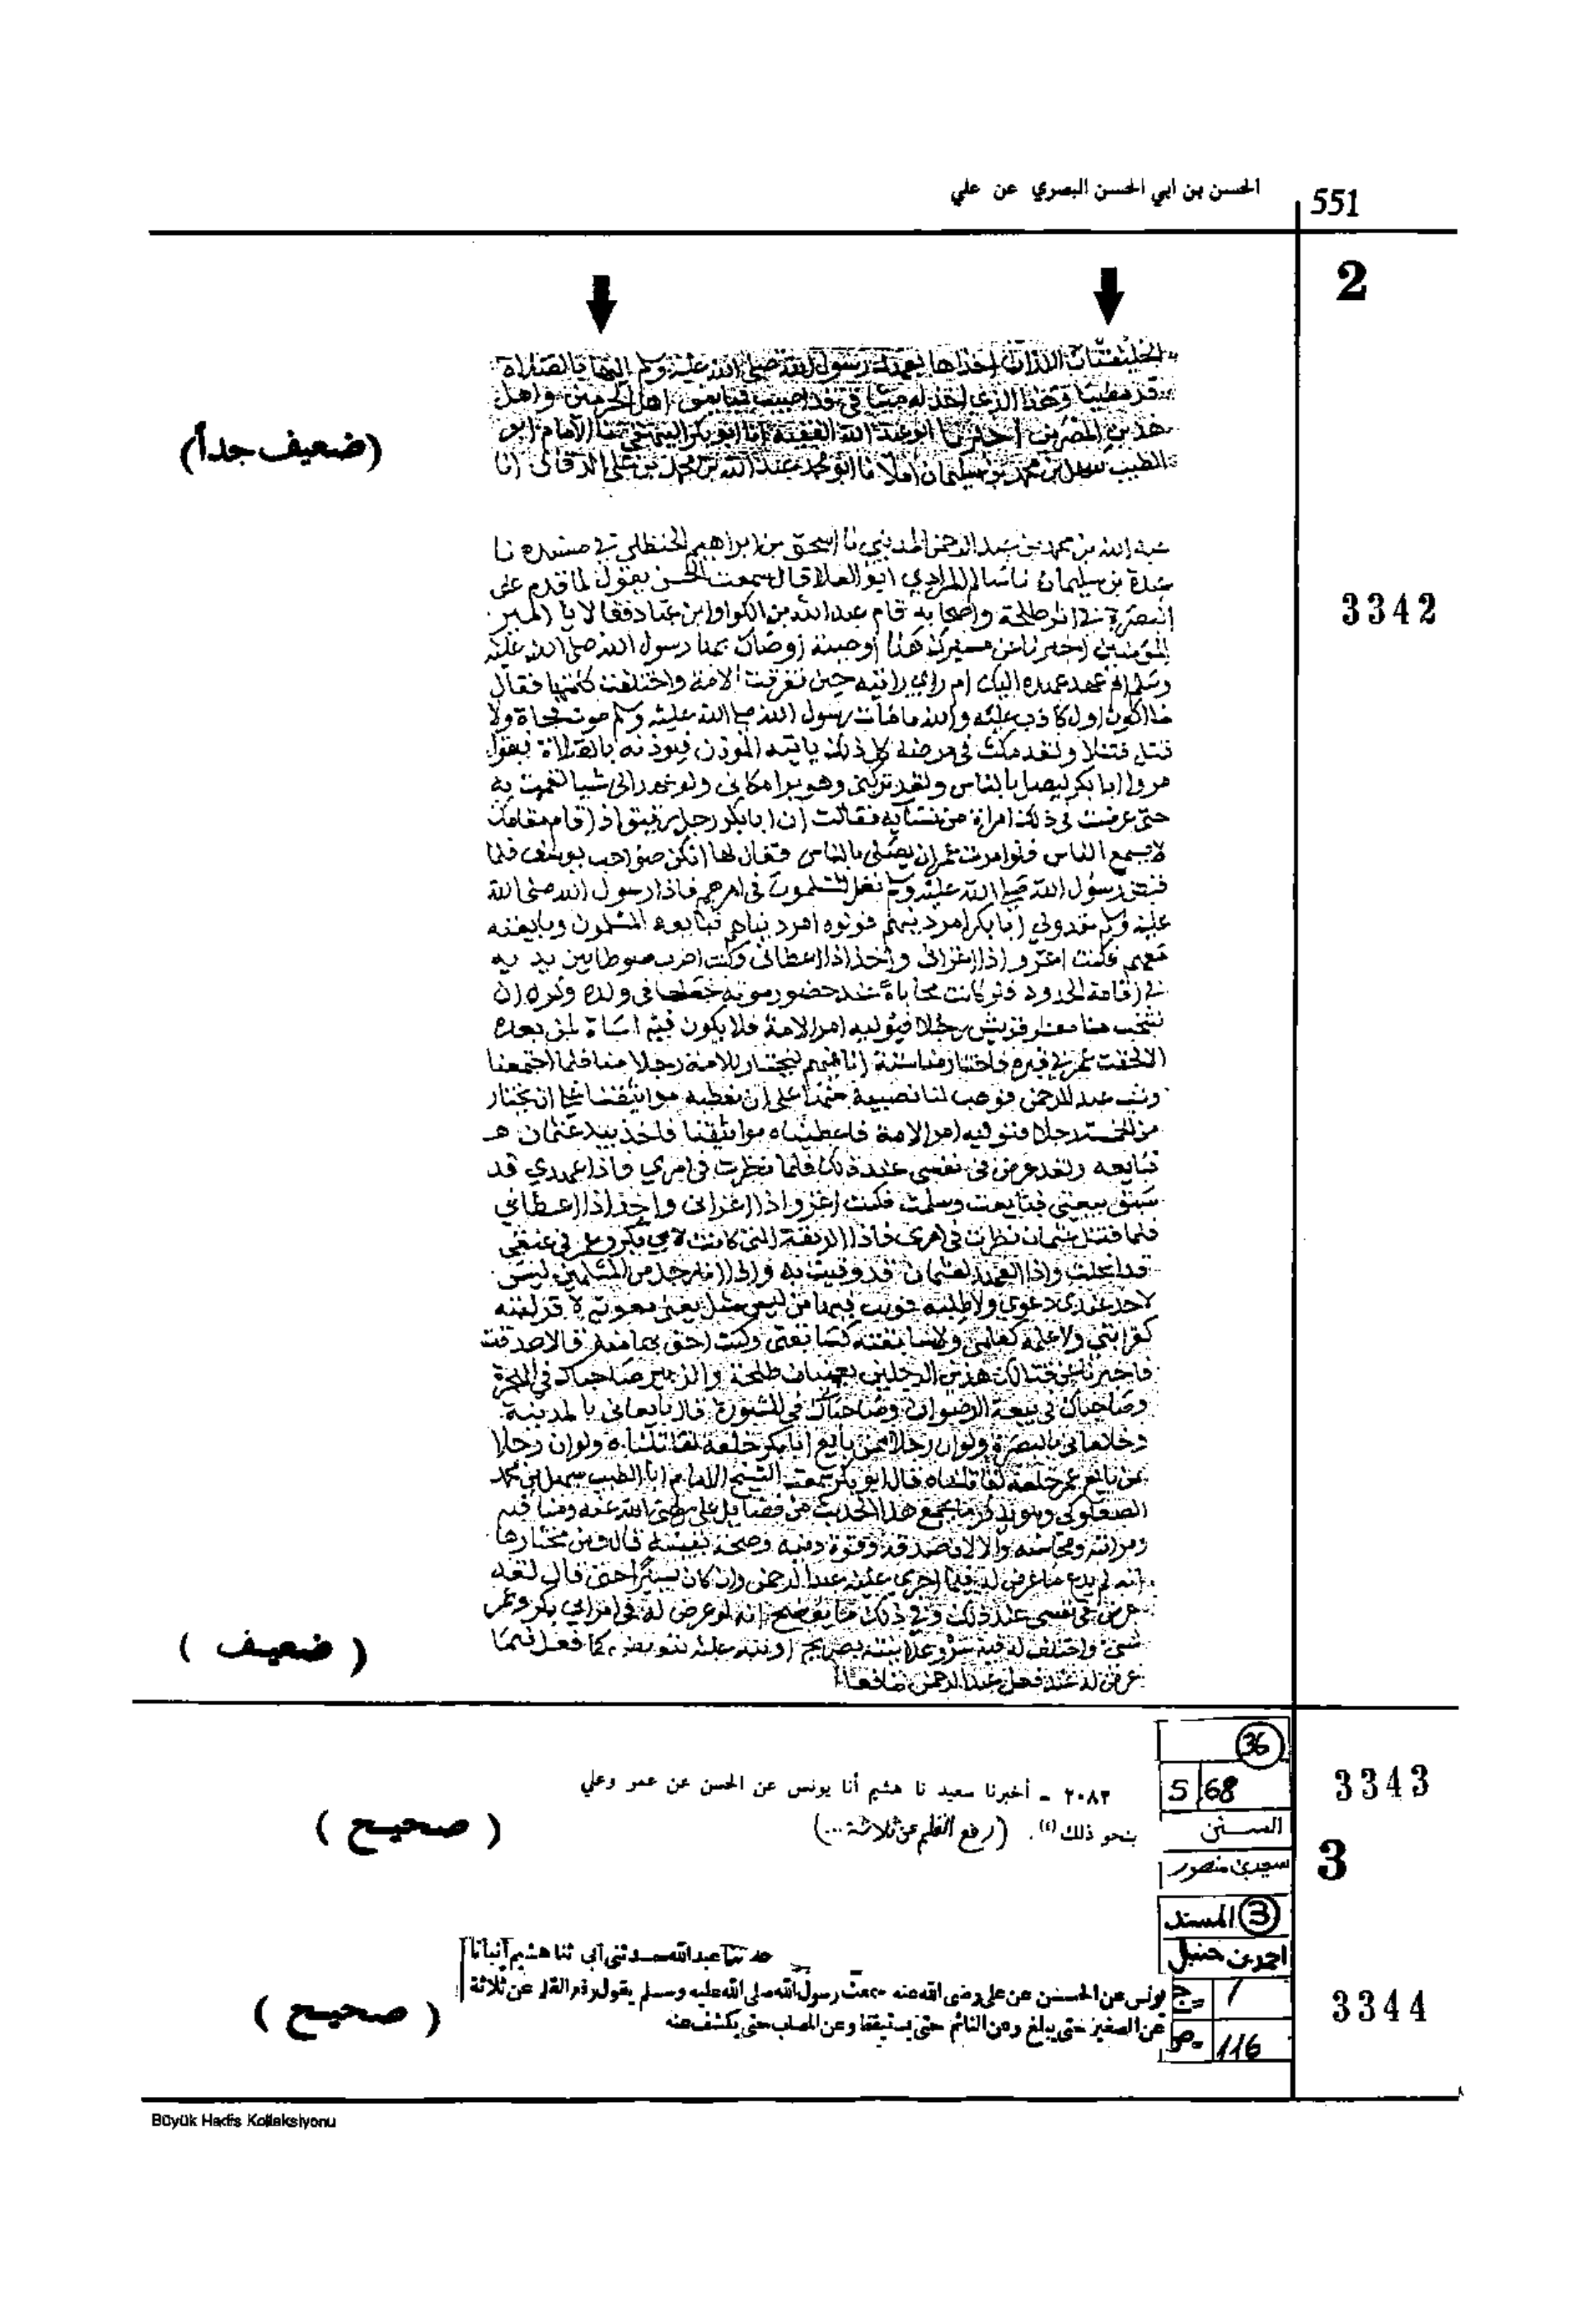 551
الحسن بن ابي الحسن البصري عن علي
2
الخليفتان اللذان اخذاها بعهد من رسول الله صلى الله عليه وسلم اليهما بالصلاة
اهل الحرمين واهل
هذين المصرين اخبرنا ابو عبد الله الفقيه انا ابو بكر البيهقي نا الامام ابو
الطيب سهل بن محمد بن سليمان املا نا ابو محمد عبد الله بن محمد بن علي الدقاق انا
(ضعيف جداً)
3342
عبد الله بن محمد بن عبد الرحمن المديني نا اسحق بن ابراهيم الحنظلي في مسنده نا
عبدة بن سليمان نا سالم المرادي ابو العلا قال سمعت الحسن يقول لما قدم علي
البصرة في اثر طلحة واصحابه قام عبد الله بن الكوا وابن عباد فقالا يا امير
المؤمنين اخبرنا عن مسيرك هذا اوصية اوصاك بها رسول الله صلى الله عليه
وسلم ام عهد عهده اليك ام راي رايته حين تفرقت الامة واختلفت كلمتها فقال
ما اكون اول كاذب عليه والله ما مات رسول الله صلى الله عليه وسلم موت فجاة ولا
قتل قتلا ولقد مكث في مرضه كل ذلك ياتيه الموذن فيوذنه بالصلاة فيقول
مروا ابا بكر ليصل بالناس ولقد تركني وهو يرا مكاني ولو عهد الى شيا لقمت به
حتى عرضت في ذلك امراة من نسايه فقالت ان ابا بكر رجل رقيق اذا قام مقامك
لا يسمع الناس فلو امرت عمر ان يصلي بالناس فقال لها انكن صواحب يوسف فلما
قبض رسول الله صلى الله عليه وسلم نظر المسلمون في امرهم فاذا رسول الله صلى الله
عليه وسلم قد ولي ابا بكر امر دينهم فولوه امر دنياهم فبايعه المسلمون وبايعته
معهم فكنت اغزو اذا اغزاني واخذ اذا اعطاني وكنت اضرب سوطا بين يديه
في اقامة الحدود فلو كانت محاباة عند حضور موته لجعلها في ولده وكره ان
ينتخب منا معشر قريش رجلا فيوليه امر الامة فلا يكون فيه اساة لمن بعده
الا لحقت عمر في قبره فاختار منا ستة انا فيهم ليختار للامة رجلا منا فلما اجتمعنا
وثب عبد الرحمن فوهب لنا نصيبه منها على ان نعطيه مواثيقنا على ان يختار
من الخمسة رجلا فنوليه امر الامة فاعطيناه مواثيقنا فاخذ بيد عثمان
فبايعه ولقد عرض في نفسي عند ذلك فلما نظرت في امري فاذا عهدي قد
سبق بيعتي فبايعت وسلمت فكنت اغزو اذا اغزاني واخذ اذا اعطاني
فلما قتل عثمان نظرت في امري فاذا الربقة التي كانت لابي بكر وعمر في عنقي
قد انحلت واذا العهد لعثمان قد وفيت به واذا انا رجل من المسلمين ليس
لاحد عندي دعوى ولا طلبة فوثب فيها من ليس مثلي يعني معوية لا قرابته
كقرابتي ولا علمه كعلمي ولا سابقته كسابقتي وكنت احق بها منه قالا صدقت
فاخبرنا عن قتالك هذين الرجلين يعنيان طلحة والزبير صاحباك في الهجرة
وصاحباك في بيعة الرضوان وصاحباك في المشورة قال بايعاني بالمدينة
وخلعاني بالبصرة ولو ان رجلا ممن بايع ابا بكر خلعه لقاتلناه ولو ان رجلا
ممن بايع عمر خلعه لقاتلناه قال ابو بكر سمعت الشيخ الامام ابا الطيب سهل بن محمد
الصعلوكي وهو يذكر ما يجمع هذا الحديث من فضايل علي رضي الله عنه ومناقبه
ومراتبه ومحاسنه ودلالات صدقه وقوة دينه وصحة بيعته قال ومن مختارها
انه لم يدع ما عرض له فيما اجرى عليه عبد الرحمن وان كان يسيرا حتى قال لقد
عرض في نفسي عند ذلك وفي ذلك ما يوضح انه لو عرض له في امر ابي بكر وعمر
عرض له عند فعل عبد الرحمن ما فعل
( ضعيف )
36
5 68
السنن
سعيد بن منصور
3343
٢٠٨٢ ــ أخبرنا سعيد نا هشيم أنا يونس عن الحسن عن عمر وعلي
بنحو ذلك (٤). (رفع القلم عن ثلاثة ...)
( صحيح )
3
3 المسند
احمد بن حنبل
ج 1
ص 116
3344
حدثنا عبدالله حدثني أبي ثنا هشيم أنبأنا
يونس عن الحسن عن على رضى الله عنه سمعت رسول الله صلى الله عليه وسلم يقول رفع القلم عن ثلاثة
عن الصغير حتى يبلغ وعن النائم حتى يستيقظ وعن المصاب حتى يكشف عنه
( صحيح )
Büyük Hadis Kolleksiyonu